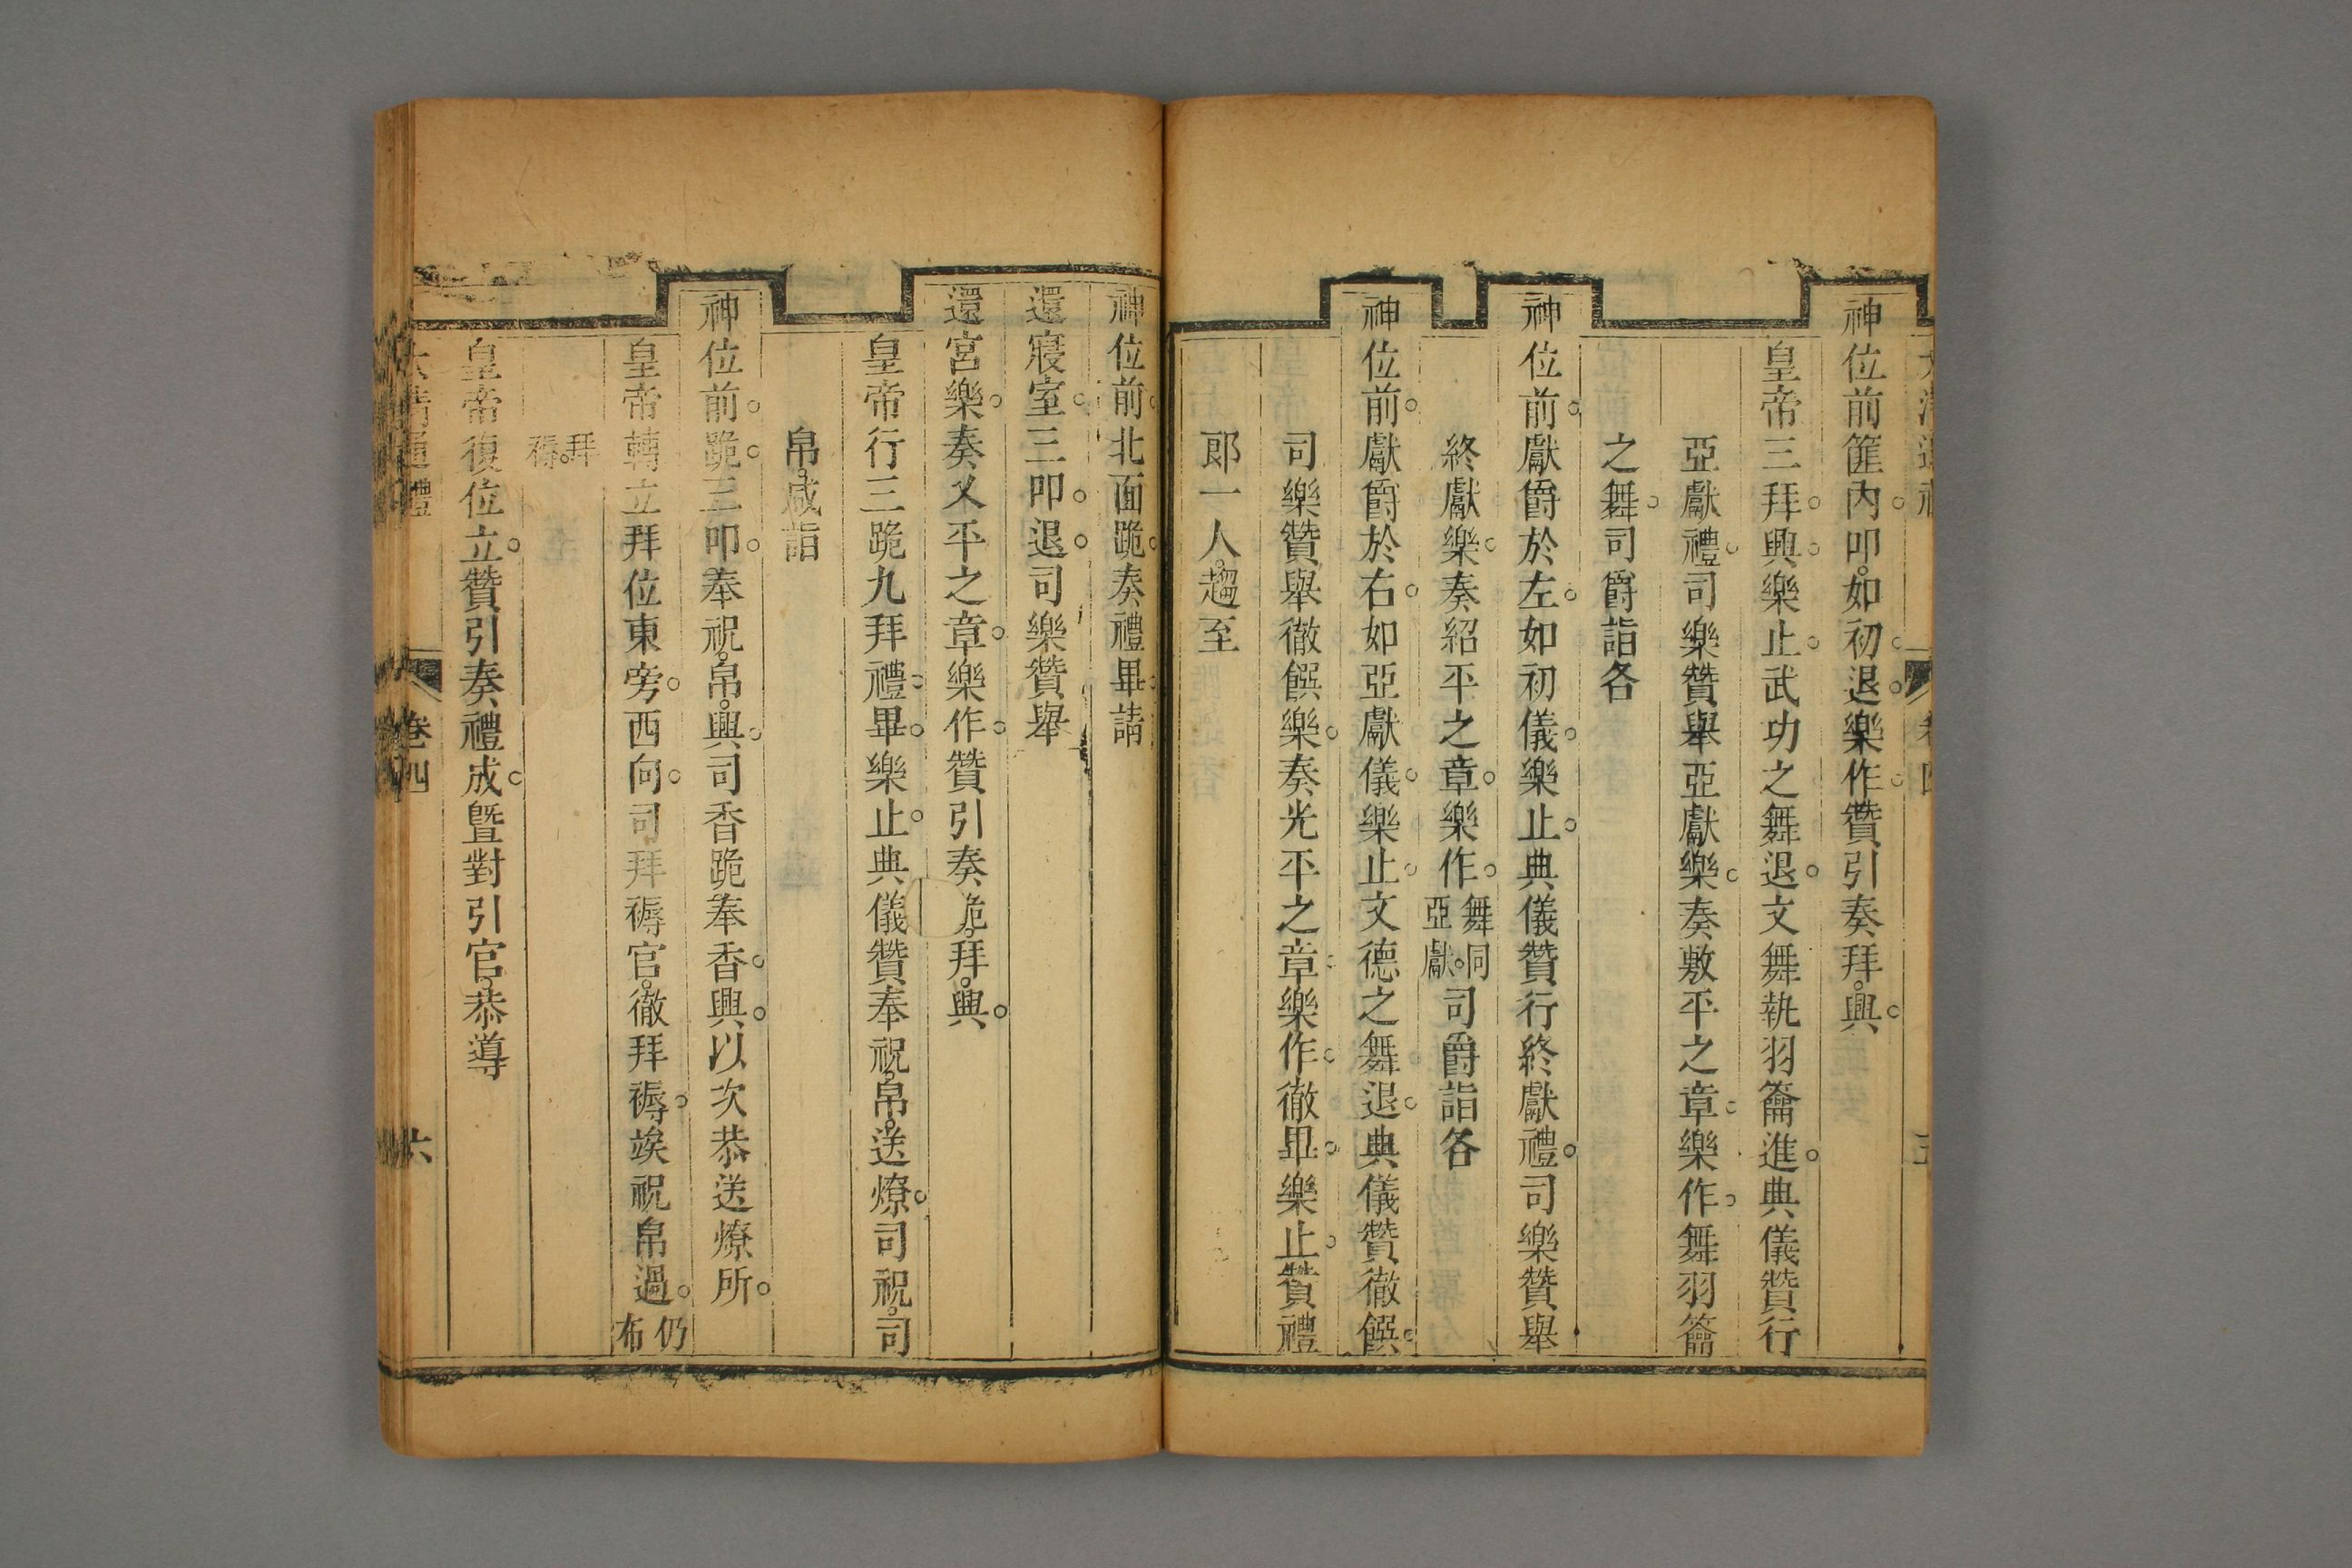 神位前篚內叩。如初。退。樂作。贊引奏拜。興。
皇帝三拜。興。樂止。武功之舞退。文舞執羽籥進。典儀贊行
亞獻禮。司樂贊舉亞獻樂。奏敷平之章。樂作。舞羽籥
之舞。司爵詣各
神位前。獻爵於左。如初儀。樂止。典儀贊行終獻禮。司樂贊舉
終獻樂。奏紹平之章。樂作。舞同亞獻。司爵詣各
神位前。獻爵於右。如亞獻儀。樂止。文德之舞退。典儀贊徹饌。
司樂贊舉徹饌樂。奏光平之章。樂作。徹畢。樂止。贊禮
郎一人。趨至
神位前。北面跪。奏禮畢。請
還寢室。三叩。退。司樂贊舉
還宮樂。奏乂平之章。樂作。贊引奏跪。拜。興。
皇帝行三跪九拜禮。畢。樂止。典儀贊奉祝。帛。送燎。司祝。司
帛。咸詣
神位前。跪。三叩。奉祝。帛。興。司香跪奉香。興。以次恭送燎所。
皇帝轉立拜位東旁。西向。司拜褥官。徹拜褥。竢祝帛過。仍布
拜褥。
皇帝復位立。贊引奏禮成。暨對引官。恭導
大清通禮 卷四 六